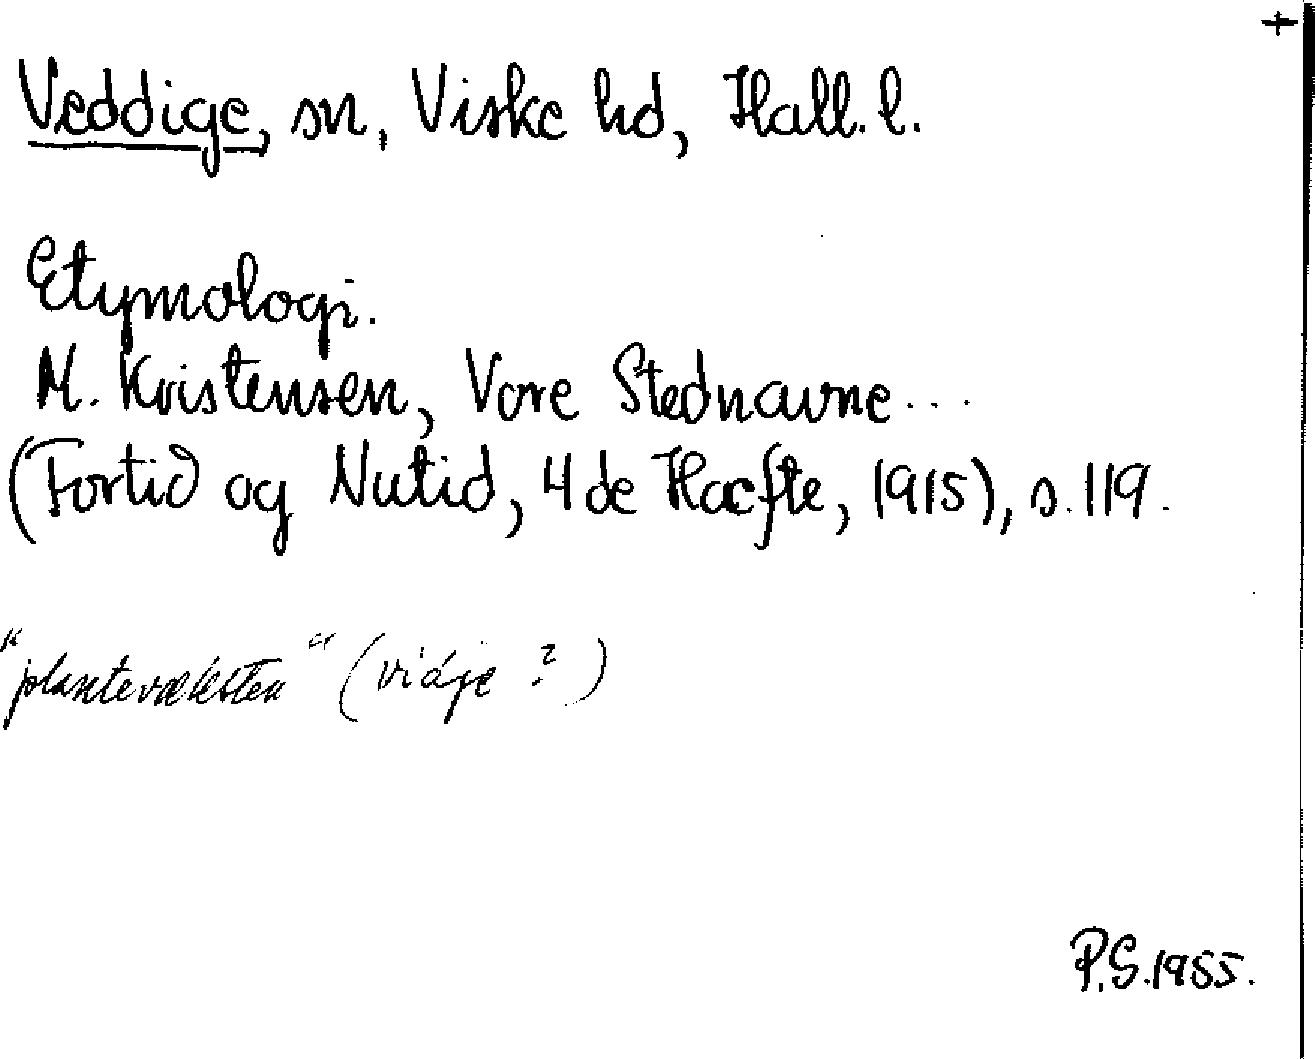 +
Veddige, sn, Viske hd, Hall. l.
Etymologi.
M. Kristensen, Vore Stednavne...
(Fortid og Nutid, 4de Hæfte, 1915), s. 119.
"plantevæksten" (vidje ?)
P.S. 1955.